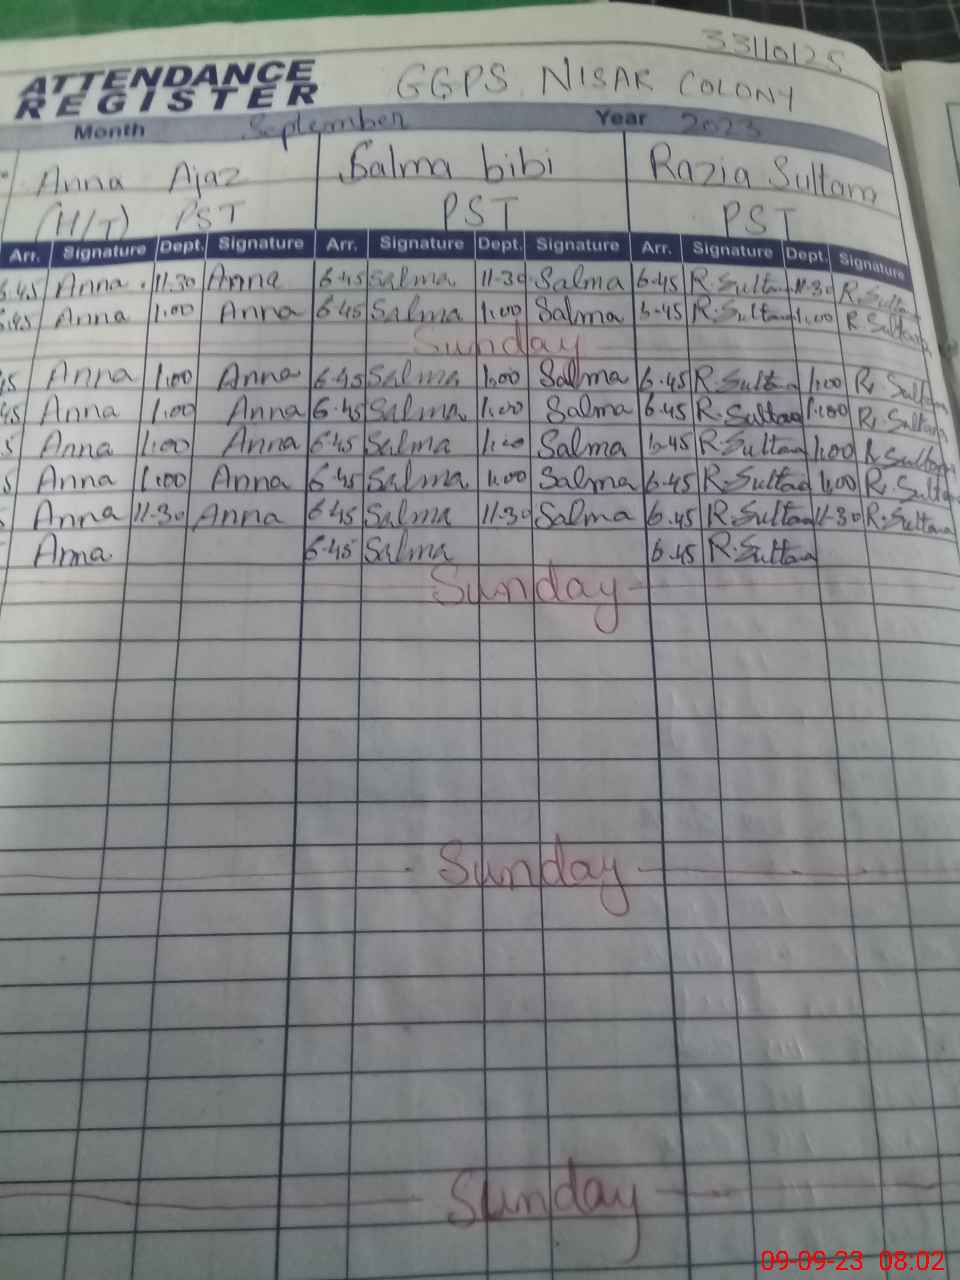 33110125
ATTENDANCE REGISTER GGPS NISAR COLONY
Month September Year 2023
Anna Ajaz Salma bibi Razia Sultana
(H/T) PST PST PST
Arr. Signature Dept. Signature Arr. Signature Dept. Signature Arr. Signature Dept. Signature
6.45 Anna 11-30 Anna 6-45 Salma 11-30 Salma 6-45 R.Sultana 11-30 R.Sultana
6.45 Anna 1.00 Anna 6-45 Salma 1.00 Salma 6-45 R.Sultana 1.00 R.Sultana
Sunday
45 Anna 1.00 Anna 6-45 Salma 1.00 Salma 6.45 R.Sultana 1.00 R.Sultana
45 Anna 1.00 Anna 6.45 Salma 1.00 Salma 6.45 R.Sultana 1.00 R.Sultana
5 Anna 1.00 Anna 6.45 Salma 1.00 Salma 6.45 R.Sultana 1.00 R.Sultana
5 Anna 1.00 Anna 6.45 Salma 1.00 Salma 6.45 R.Sultana 1.00 R.Sultana
Anna 11-30 Anna 6.45 Salma 11-30 Salma 6.45 R.Sultana 11-30 R.Sultana
Anna 6-45 Salma 6.45 R.Sultana
Sunday
Sunday
Sunday
09-09-23 08:02